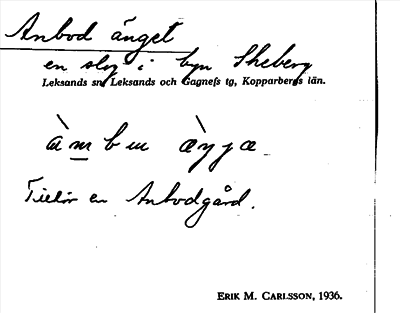 Anbod änget
en slog i byn Skeberg
Leksands sn, Leksands och Gagnefs tg, Kopparbergs län.
Tillhör en Anbodgård.
ERIK M. CARLSSON, 1936.